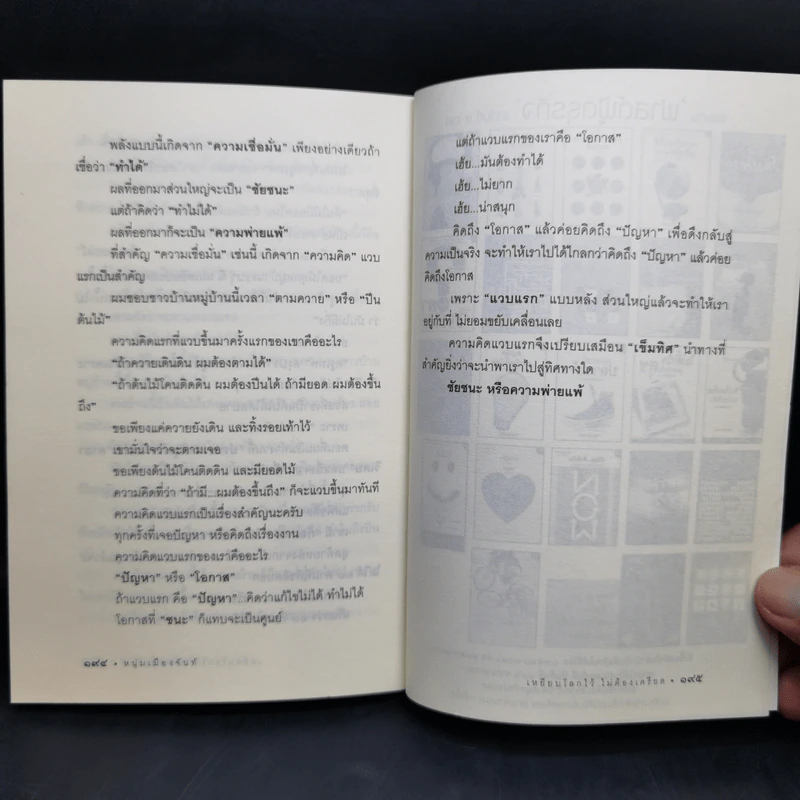 พลังแบบนี้เกิดจาก "ความเชื่อมั่น" เพียงอย่างเดียวถ้า
เชื่อว่า "ทำได้"
ผลที่ออกมาส่วนใหญ่จะเป็น "ชัยชนะ"
แต่ถ้าคิดว่า "ทำไม่ได้"
ผลที่ออกมาก็จะเป็น "ความพ่ายแพ้"
ที่สำคัญ "ความเชื่อมั่น" เช่นนี้ เกิดจาก "ความคิด" แวบ
แรกเป็นสำคัญ
ผมชอบชาวบ้านหมู่บ้านนี้เวลา "ตามควาย" หรือ "ปีน
ต้นไม้"
ความคิดแรกที่แวบขึ้นมาครั้งแรกของเขาคืออะไร
"ถ้าควายเดินดิน ผมต้องตามได้"
"ถ้าต้นไม้โคนติดดิน ผมต้องปีนได้ ถ้ามียอด ผมต้องขึ้น
ถึง"
ขอเพียงแค่ควายยังเดิน และทิ้งรอยเท้าไว้
เขามั่นใจว่าจะตามเจอ
ขอเพียงต้นไม้โคนติดดิน และมียอดไม้
ความคิดที่ว่า "ถ้ามี...ผมต้องขึ้นถึง" ก็จะแวบขึ้นมาทันที
ความคิดแวบแรกเป็นเรื่องสำคัญนะครับ
ทุกครั้งที่เจอปัญหา หรือคิดถึงเรื่องงาน
ความคิดแวบแรกของเราคืออะไร
"ปัญหา" หรือ "โอกาส"
ถ้าแวบแรก คือ "ปัญหา"...คิดว่าแก้ไขไม่ได้ ทำไม่ได้
โอกาสที่ "ชนะ" ก็แทบจะเป็นศูนย์
๑๙๔ • หนุ่มเมืองจันท์
แต่ถ้าแวบแรกของเราคือ "โอกาส"
เฮ้ย...มันต้องทำได้
เฮ้ย...ไม่ยาก
เฮ้ย...น่าสนุก
คิดถึง "โอกาส" แล้วค่อยคิดถึง "ปัญหา" เพื่อดึงกลับสู่
ความเป็นจริง จะทำให้เราไปได้ไกลกว่าคิดถึง "ปัญหา" แล้วค่อย
คิดถึงโอกาส
เพราะ "แวบแรก" แบบหลัง ส่วนใหญ่แล้วจะทำให้เรา
อยู่กับที่ ไม่ยอมขยับเคลื่อนเลย
ความคิดแวบแรกจึงเปรียบเสมือน "เข็มทิศ" นำทางที่
สำคัญยิ่งว่าจะนำพาเราไปสู่ทิศทางใด
ชัยชนะ หรือความพ่ายแพ้
เหยียบโลกไว้ ไม่ต้องเครียด • ๑๙๕